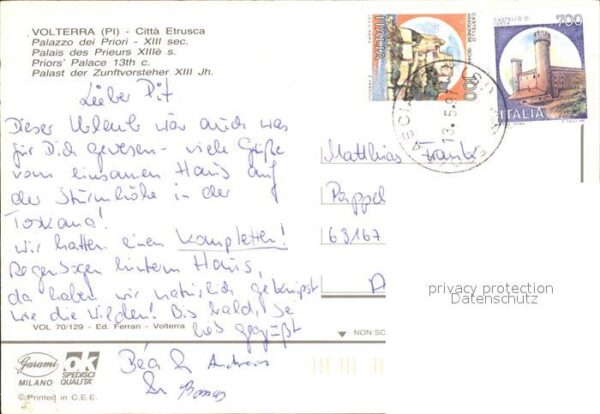 VOLTERRA (PI) - Città Etrusca
Palazzo dei Priori - XIII sec.
Palais des Prieurs XIIIè s.
Priors' Palace 13th c.
Palast der Zunftvorsteher XIII Jh.
Lieber Pit
Dieser Urlaub wär auch was
für Dich gewesen - viele Grüße
vom einsamen Haus auf
der Sturmhöhe in der
Toskana!
Wir hatten einen kompletten!
Regenbogen hinterm Haus,
da haben wir natürlich geknipst
wie die Wilden! Bis bald, sei
lieb gegrüßt
VOL 70/129 - Ed. Ferrari - Volterra
Béa & Andreas
&
Garami
MILANO
ok
SPEDISCI
QUALITA'
© Printed in C.E.E.
CASTELLO
700
ITALIA
100
ITALIA
Matthias
Pappel
68167
NON SC
privacy protection
Datenschutz